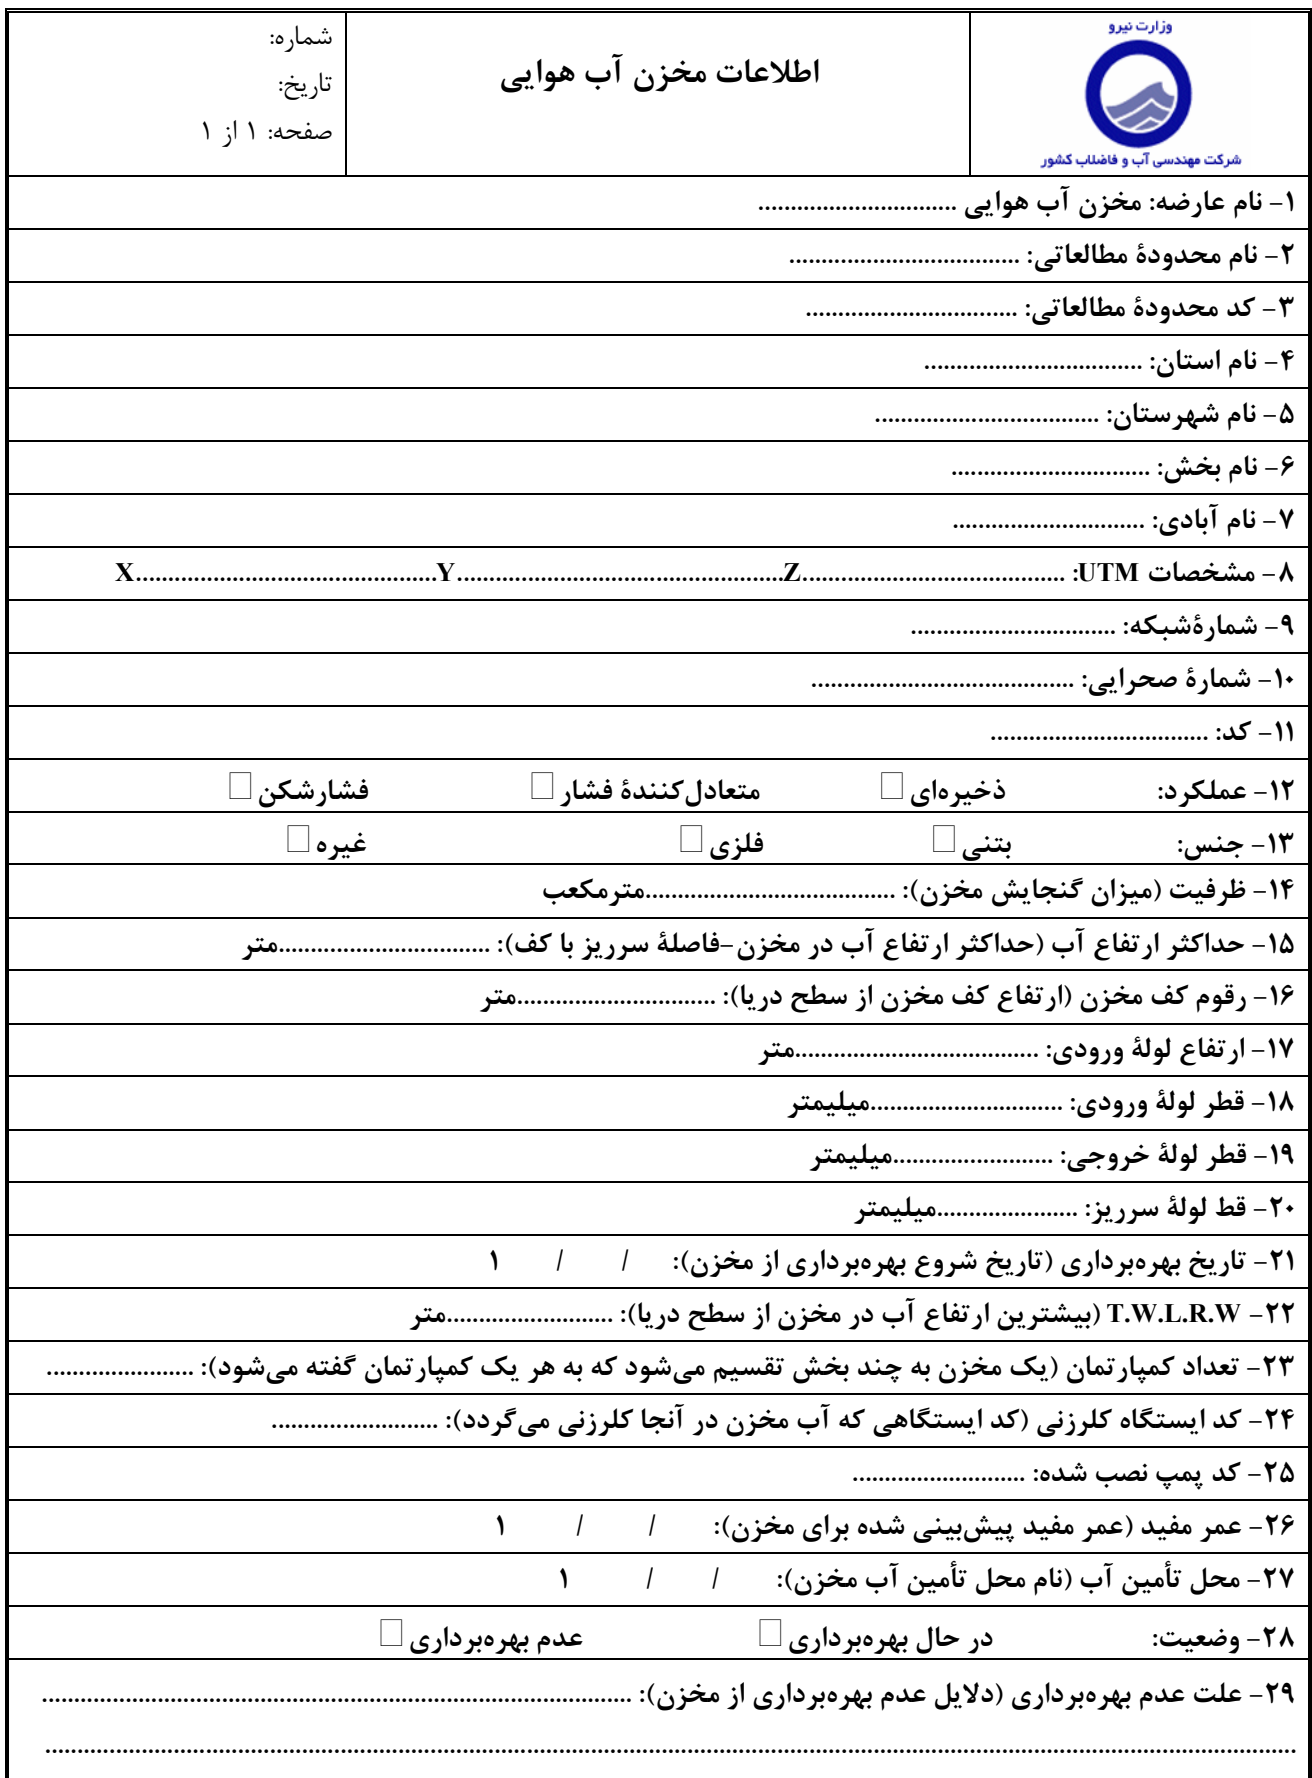 وزارت نیرو
شرکت مهندسی آب و فاضلاب کشور
اطلاعات مخزن آب هوایی
شماره:
تاریخ:
صفحه: ۱ از ۱
۱- نام عارضه: مخزن آب هوایی ...............................
۲- نام محدودهٔ مطالعاتی: ...................................
۳- کد محدودهٔ مطالعاتی: .................................
۴- نام استان: ..................................
۵- نام شهرستان: ...................................
۶- نام بخش: ...............................
۷- نام آبادی: ..............................
۸- مشخصات UTM: .........................................Z...................................................Y...............................................X
۹- شمارهٔشبکه: ................................
۱۰- شمارهٔ صحرایی: .........................................
۱۱- کد: ..................................
۱۲- عملکرد: ذخیره‌ای □ متعادل‌کنندهٔ فشار □ فشارشکن □
۱۳- جنس: بتنی □ فلزی □ غیره □
۱۴- ظرفیت (میزان گنجایش مخزن): .......................................مترمکعب
۱۵- حداکثر ارتفاع آب (حداکثر ارتفاع آب در مخزن-فاصلهٔ سرریز با کف): .................................متر
۱۶- رقوم کف مخزن (ارتفاع کف مخزن از سطح دریا): ...............................متر
۱۷- ارتفاع لولهٔ ورودی: ......................................متر
۱۸- قطر لولهٔ ورودی: ..............................میلیمتر
۱۹- قطر لولهٔ خروجی: .........................میلیمتر
۲۰- قط لولهٔ سرریز: ......................میلیمتر
۲۱- تاریخ بهره‌برداری (تاریخ شروع بهره‌برداری از مخزن): / / ۱
۲۲- T.W.L.R.W (بیشترین ارتفاع آب در مخزن از سطح دریا): ..........................متر
۲۳- تعداد کمپارتمان (یک مخزن به چند بخش تقسیم می‌شود که به هر یک کمپارتمان گفته می‌شود): .......................
۲۴- کد ایستگاه کلرزنی (کد ایستگاهی که آب مخزن در آنجا کلرزنی می‌گردد): ..........................
۲۵- کد پمپ نصب شده: ...........................
۲۶- عمر مفید (عمر مفید پیش‌بینی شده برای مخزن): / / ۱
۲۷- محل تأمین آب (نام محل تأمین آب مخزن): / / ۱
۲۸- وضعیت: در حال بهره‌برداری □ عدم بهره‌برداری □
۲۹- علت عدم بهره‌برداری (دلایل عدم بهره‌برداری از مخزن): ............................................................................................
....................................................................................................................................................................................................